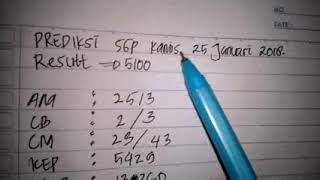 NO:
DATE:
PREDIKSI SGP Kamis, 25 Januari 2018.
Result = 05100
AM : 25/3
CB : 2/3
CM : 23/43
KEP : 5929